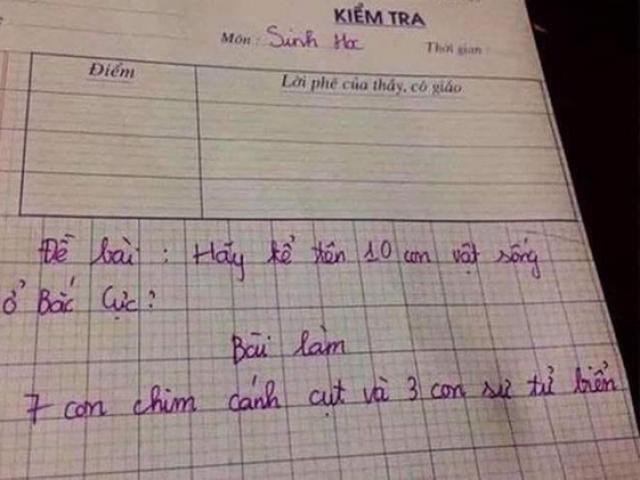 KIỂM TRA
Môn: Sinh Học Thời gian:
Điểm Lời phê của thầy, cô giáo
Đề bài: Hãy kể tên 10 con vật sống
ở Bắc Cực?
Bài làm
7 con chim cánh cụt và 3 con sư tử biển